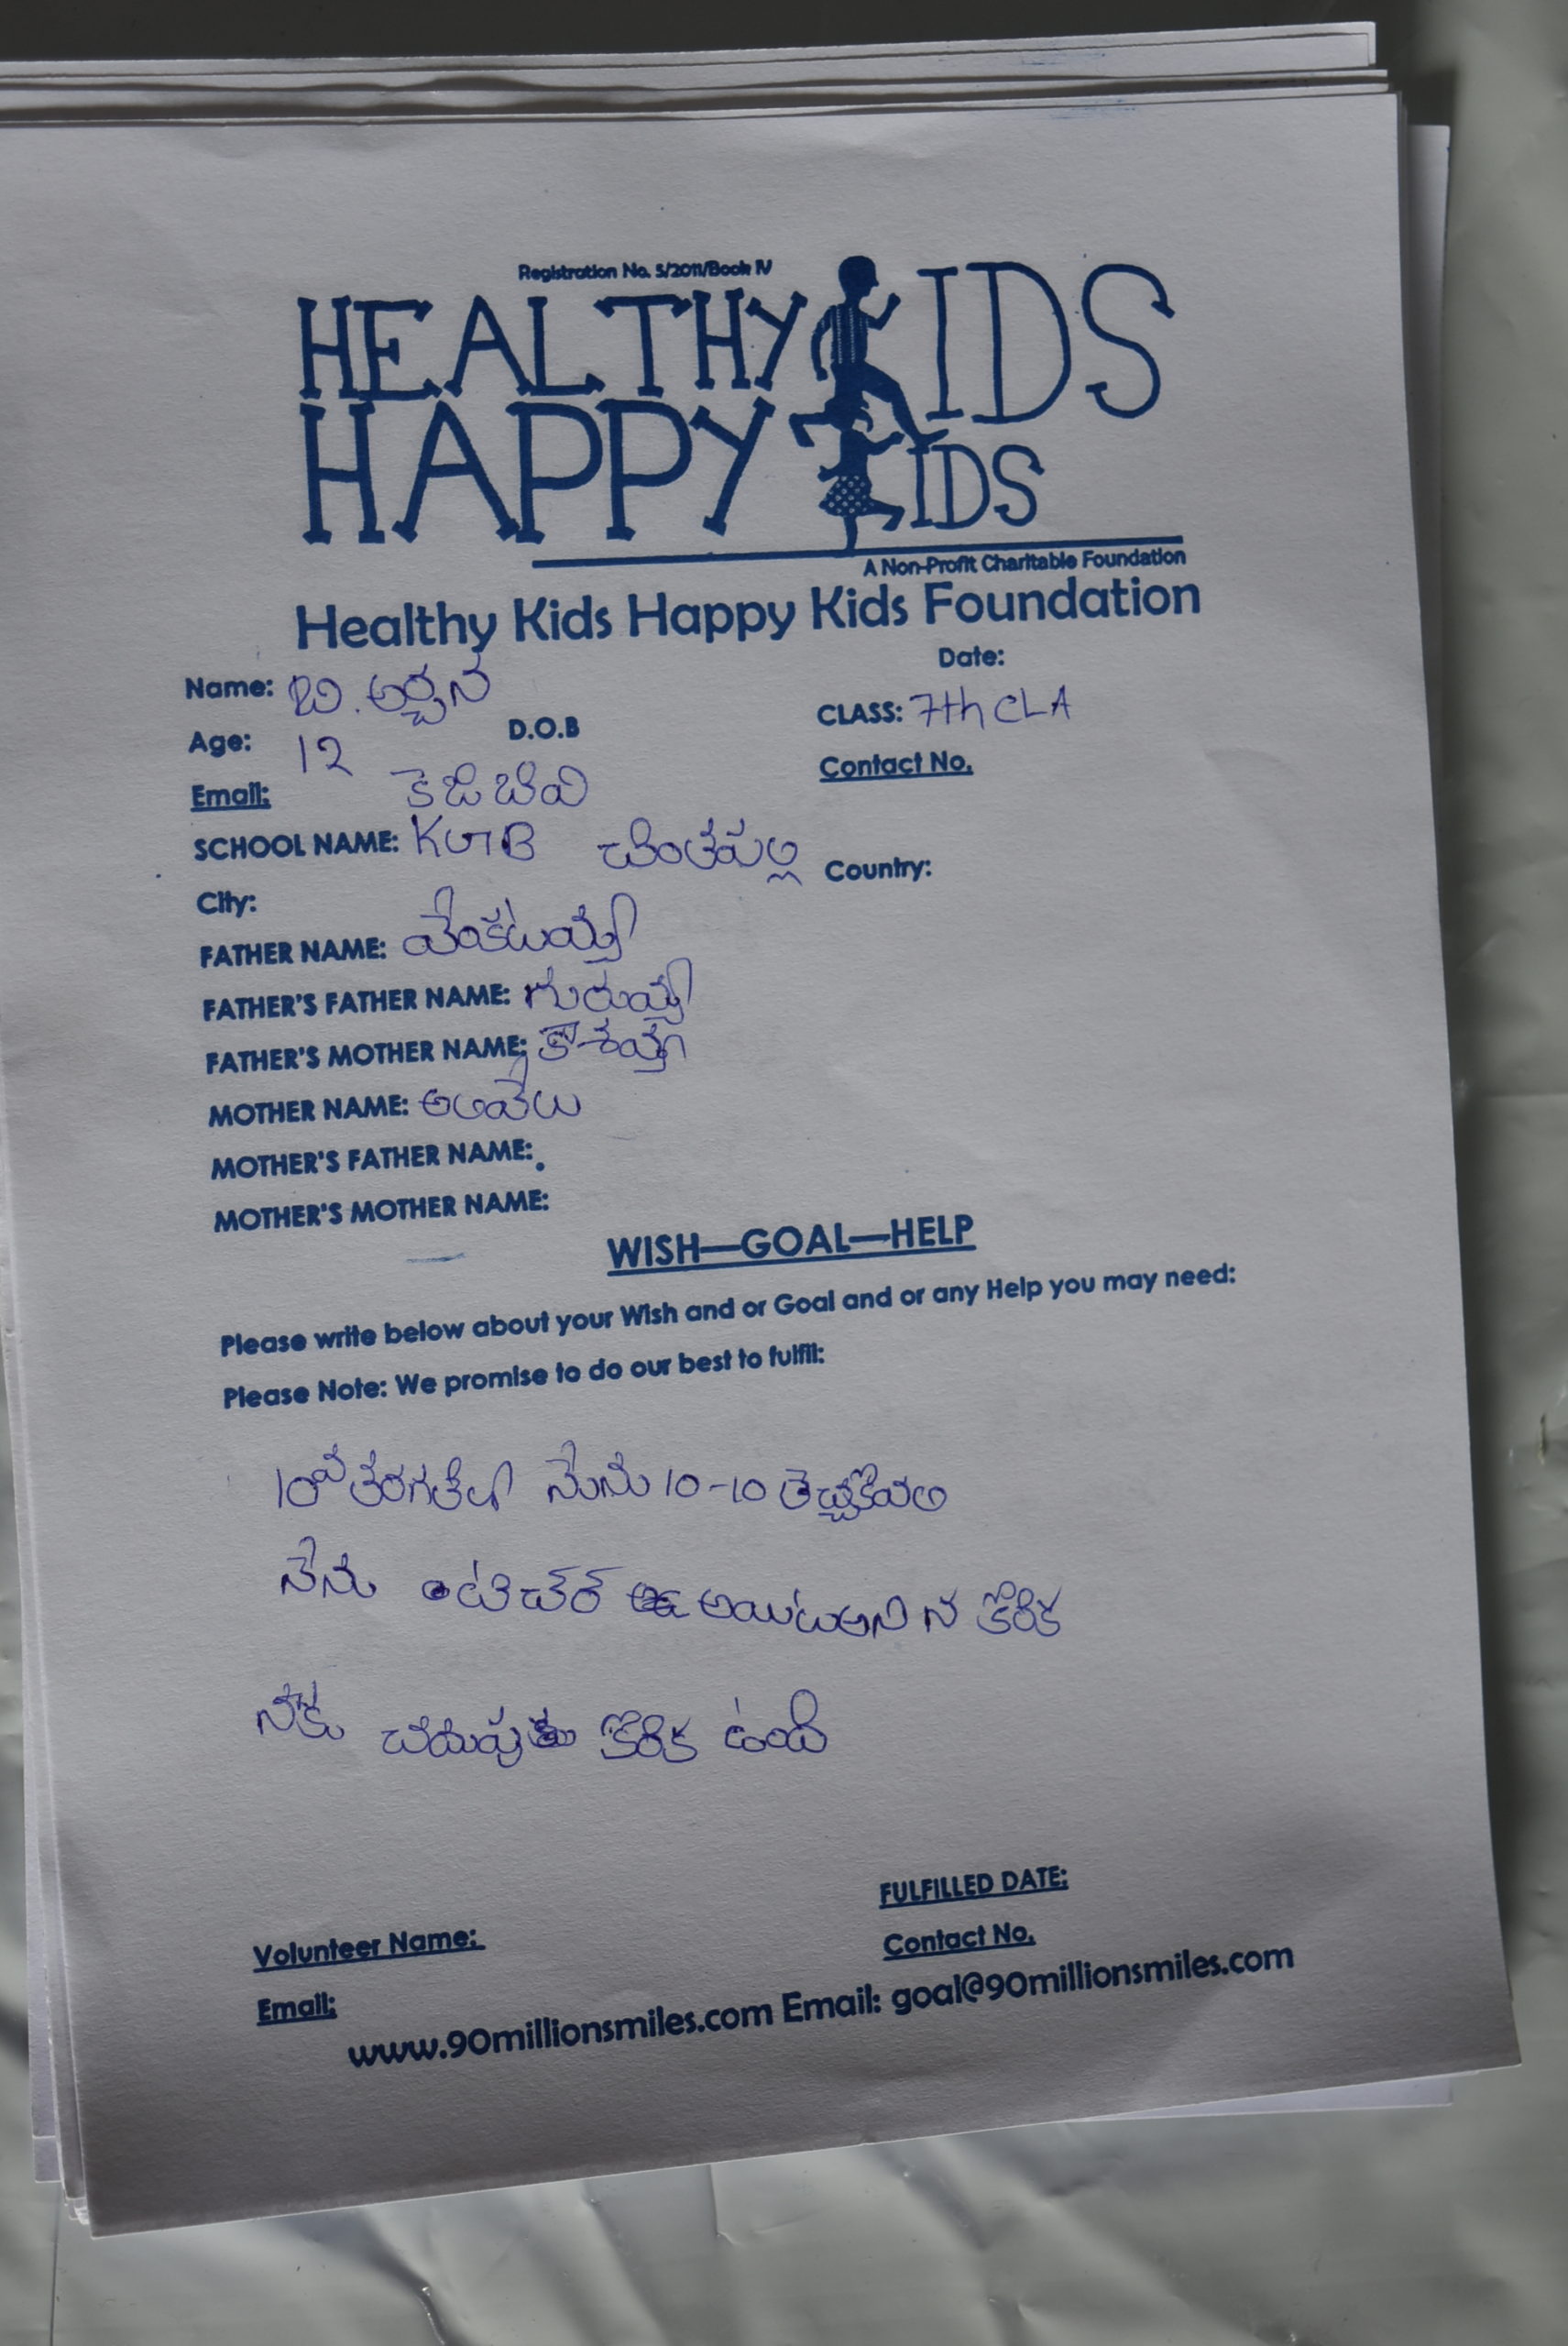 Registration No. 5/2011/Book IV
HEALTHY KIDS
HAPPY KIDS
A Non-Profit Charitable Foundation
Healthy Kids Happy Kids Foundation
Date:
Name: బి. అర్చన
CLASS: 7th CLA
Age: 12 D.O.B
Contact No.
Email: కెజిబివి
SCHOOL NAME: KGB చింతపల్లి
City: Country:
FATHER NAME: వెంకటయ్య
FATHER'S FATHER NAME: గురువయ్య
FATHER'S MOTHER NAME:
MOTHER NAME: అలివేలు
MOTHER'S FATHER NAME:
MOTHER'S MOTHER NAME:
WISH—GOAL—HELP
Please write below about your Wish and or Goal and or any Help you may need:
Please Note: We promise to do our best to fulfil:
10వ తరగతిలో నేను 10-10 తెచ్చుకోవలి
నేను టిచర్ అని న కోరిక
నాకు చదువు కోరిక ఉంది
FULFILLED DATE:
Volunteer Name:
Contact No.
Email:
www.90millionsmiles.com Email: goal@90millionsmiles.com